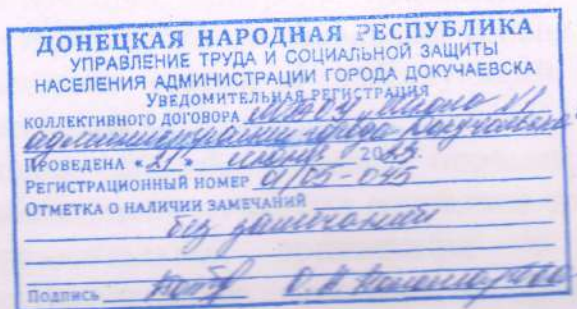 ДОНЕЦКАЯ НАРОДНАЯ РЕСПУБЛИКА
УПРАВЛЕНИЕ ТРУДА И СОЦИАЛЬНОЙ ЗАЩИТЫ
НАСЕЛЕНИЯ АДМИНИСТРАЦИИ ГОРОДА ДОКУЧАЕВСКА
УВЕДОМИТЕЛЬНАЯ РЕГИСТРАЦИЯ
КОЛЛЕКТИВНОГО ДОГОВОРА Школа №1
администрации города Докучаевска
ПРОВЕДЕНА «21» 2023.
РЕГИСТРАЦИОННЫЙ НОМЕР 01/05-045
ОТМЕТКА О НАЛИЧИИ ЗАМЕЧАНИЙ
без замечаний
Подпись О.Н. Пономарева